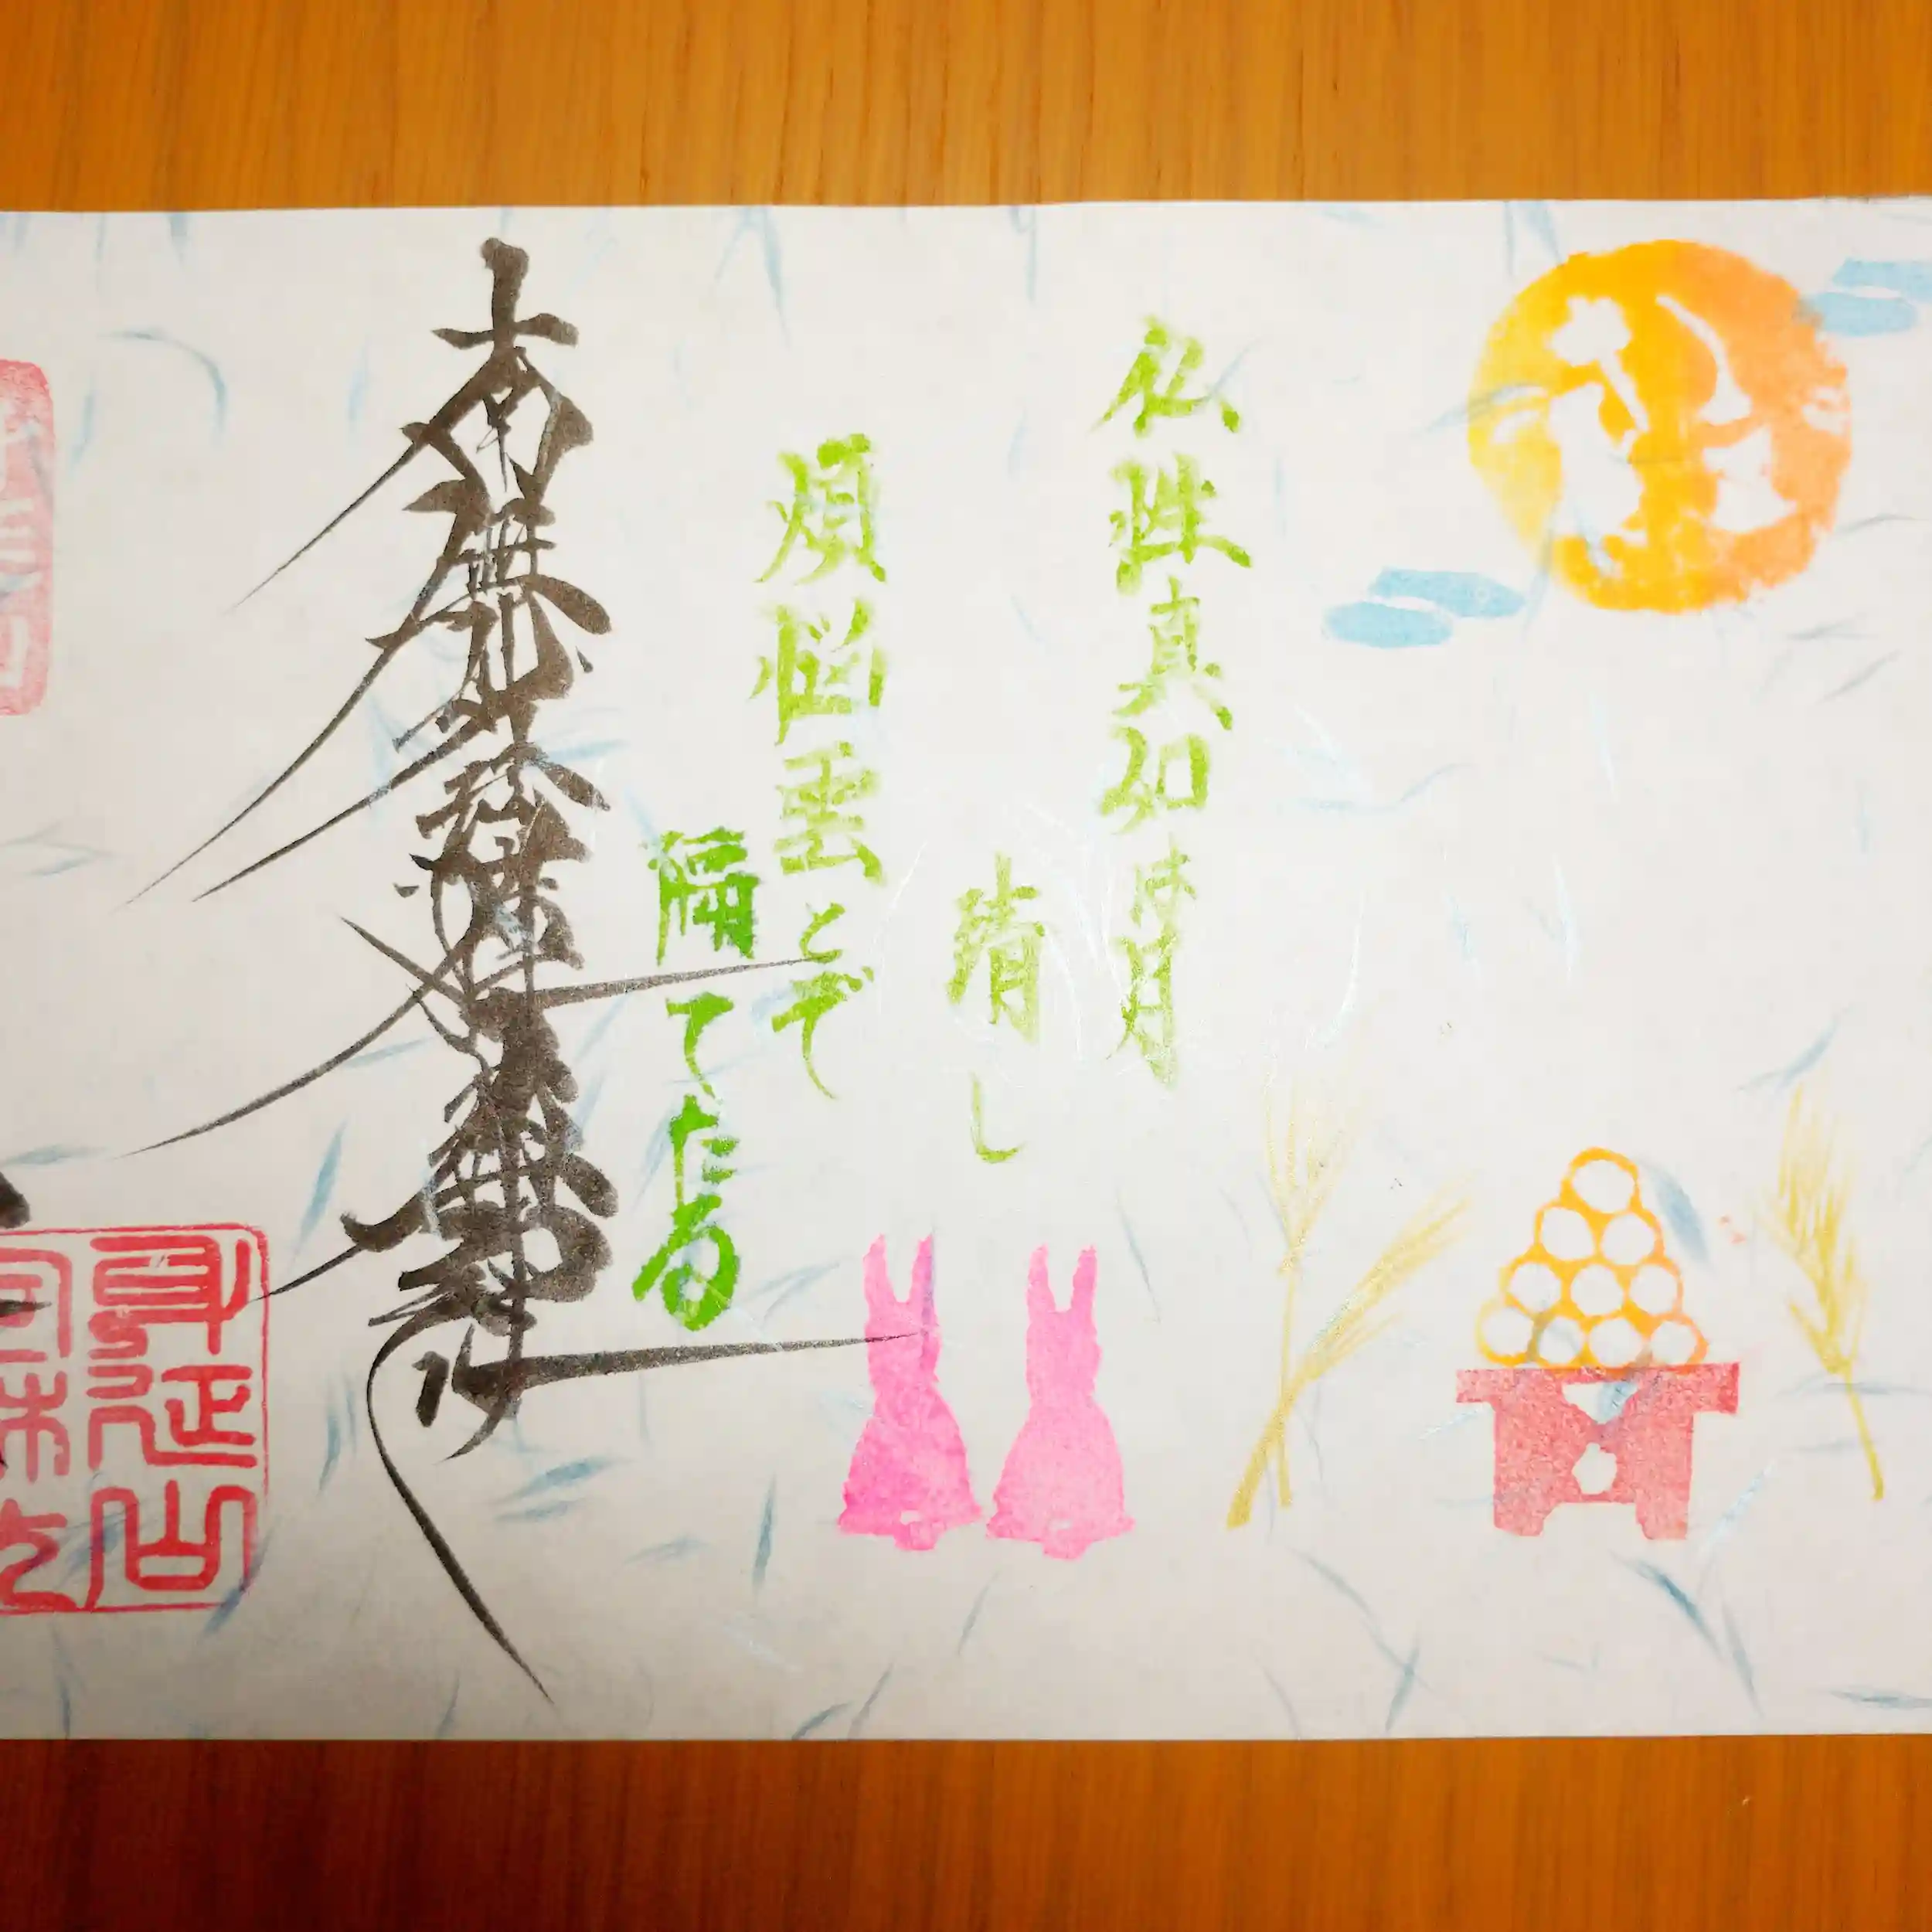 仏性真如は月
晴し
煩悩雲とで
隔てたる
南無妙法蓮華経
身延山